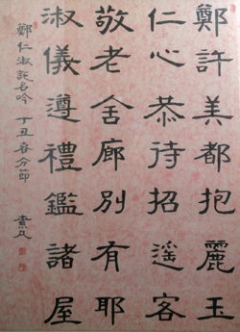 鄭許美都抱麗玉
仁心恭待招遙客
敬老舍廊別有耶
淑儀遵禮鑑諸屋
鄭仁淑託名吟 丁丑春分節